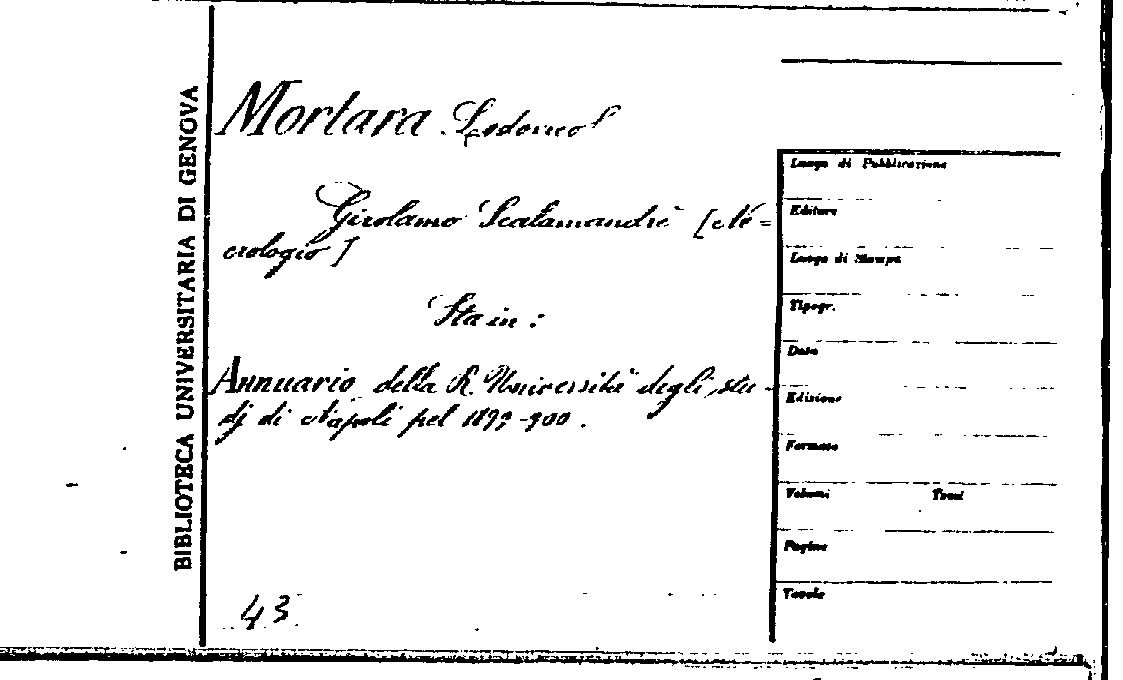 BIBLIOTECA UNIVERSITARIA DI GENOVA
Mortara Lodovico
Girolamo Scalamandrè [Ne=
crologio]
Sta in:
Annuario della R. Università degli stu-
dj di Napoli pel 1899-900.
43
Luogo di Pubblicazione
Editore
Luogo di Stampa
Tipogr.
Data
Edizione
Formato
Volumi Tomi
Pagine
Tavole